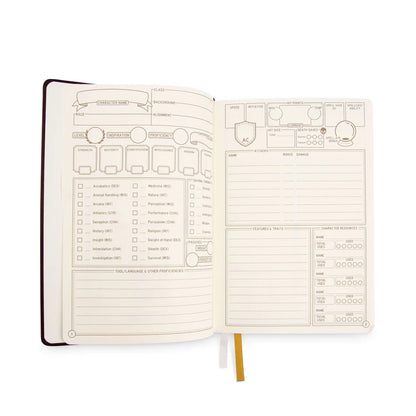 CLASS
CHARACTER NAME
BACKGROUND
RACE
ALIGNMENT
LEVEL
INSPIRATION
PROFICIENCY
STRENGTH
DEXTERITY
CONSTITUTION
INTELLIGENCE
WISDOM
Acrobatics (DEX)
Animal Handling (WIS)
Arcana (INT)
Athletics (STR)
Deception (CHA)
History (INT)
Insight (WIS)
Intimidation (CHA)
Investigation (INT)
Medicine (WIS)
Nature (INT)
Perception (WIS)
Performance (CHA)
Persuasion (CHA)
Religion (INT)
Sleight of Hand (DEX)
Stealth (DEX)
Survival (WIS)
PASSIVES
TOOL/LANGUAGE & OTHER PROFICIENCIES
SPEED
INITIATIVE
AC
HIT POINTS
MAX
TEMP
HIT DICE
DEATH SAVES
SPELL SAVE DC
ATTACKS
NAME
BONUS
DAMAGE
FEATURES & TRAITS
CHARACTER RESOURCES
NAME
TOTAL USES
USED
NAME
TOTAL USES
USED
NAME
TOTAL USES
USED
NAME
TOTAL USES
USED
NAME
TOTAL USES
USED